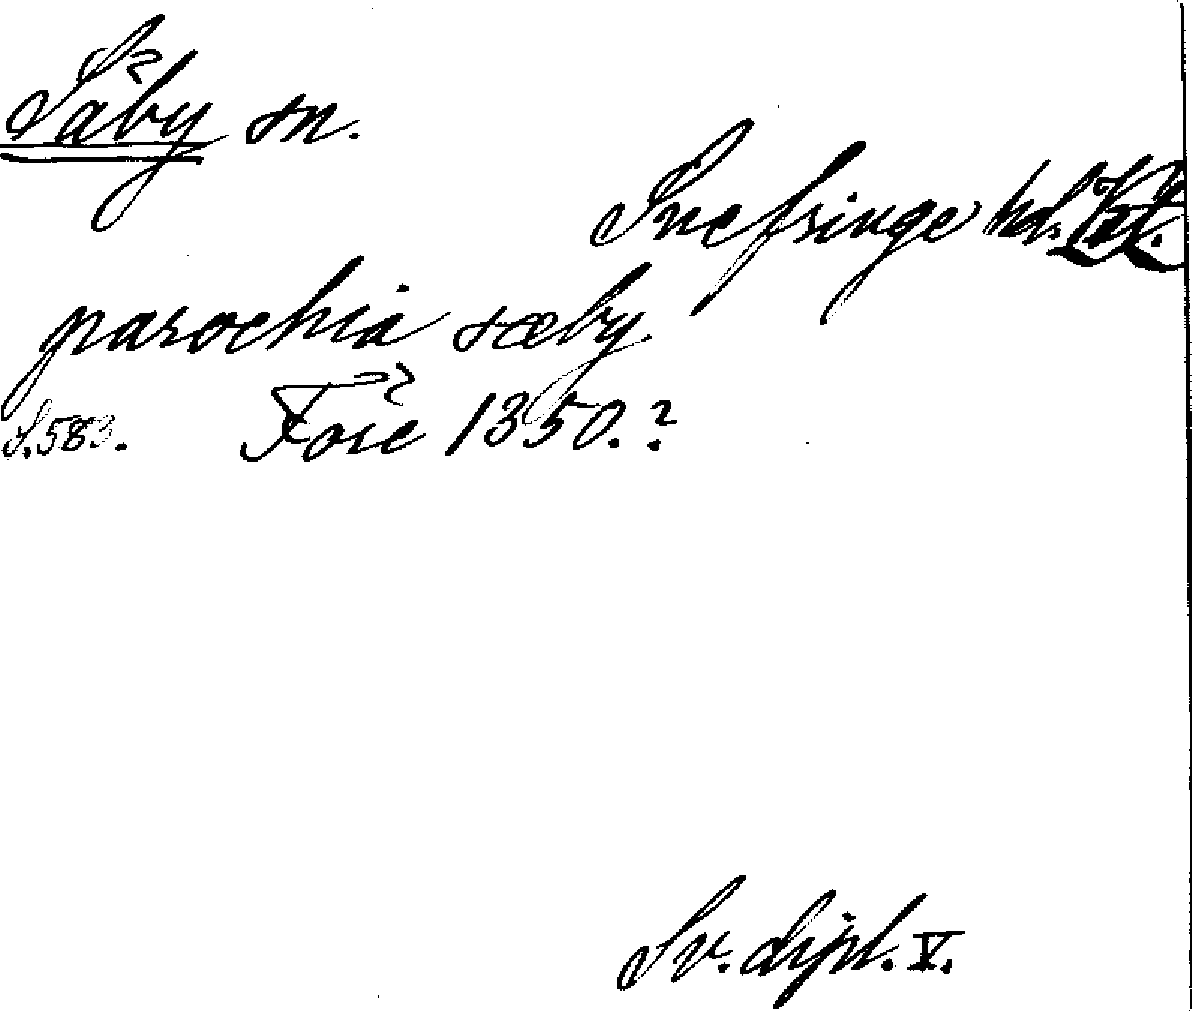 Säby sn.
Snefringe hd.
parochia sæby
S. 583. Före 1350.?
Sv. dipl. V.